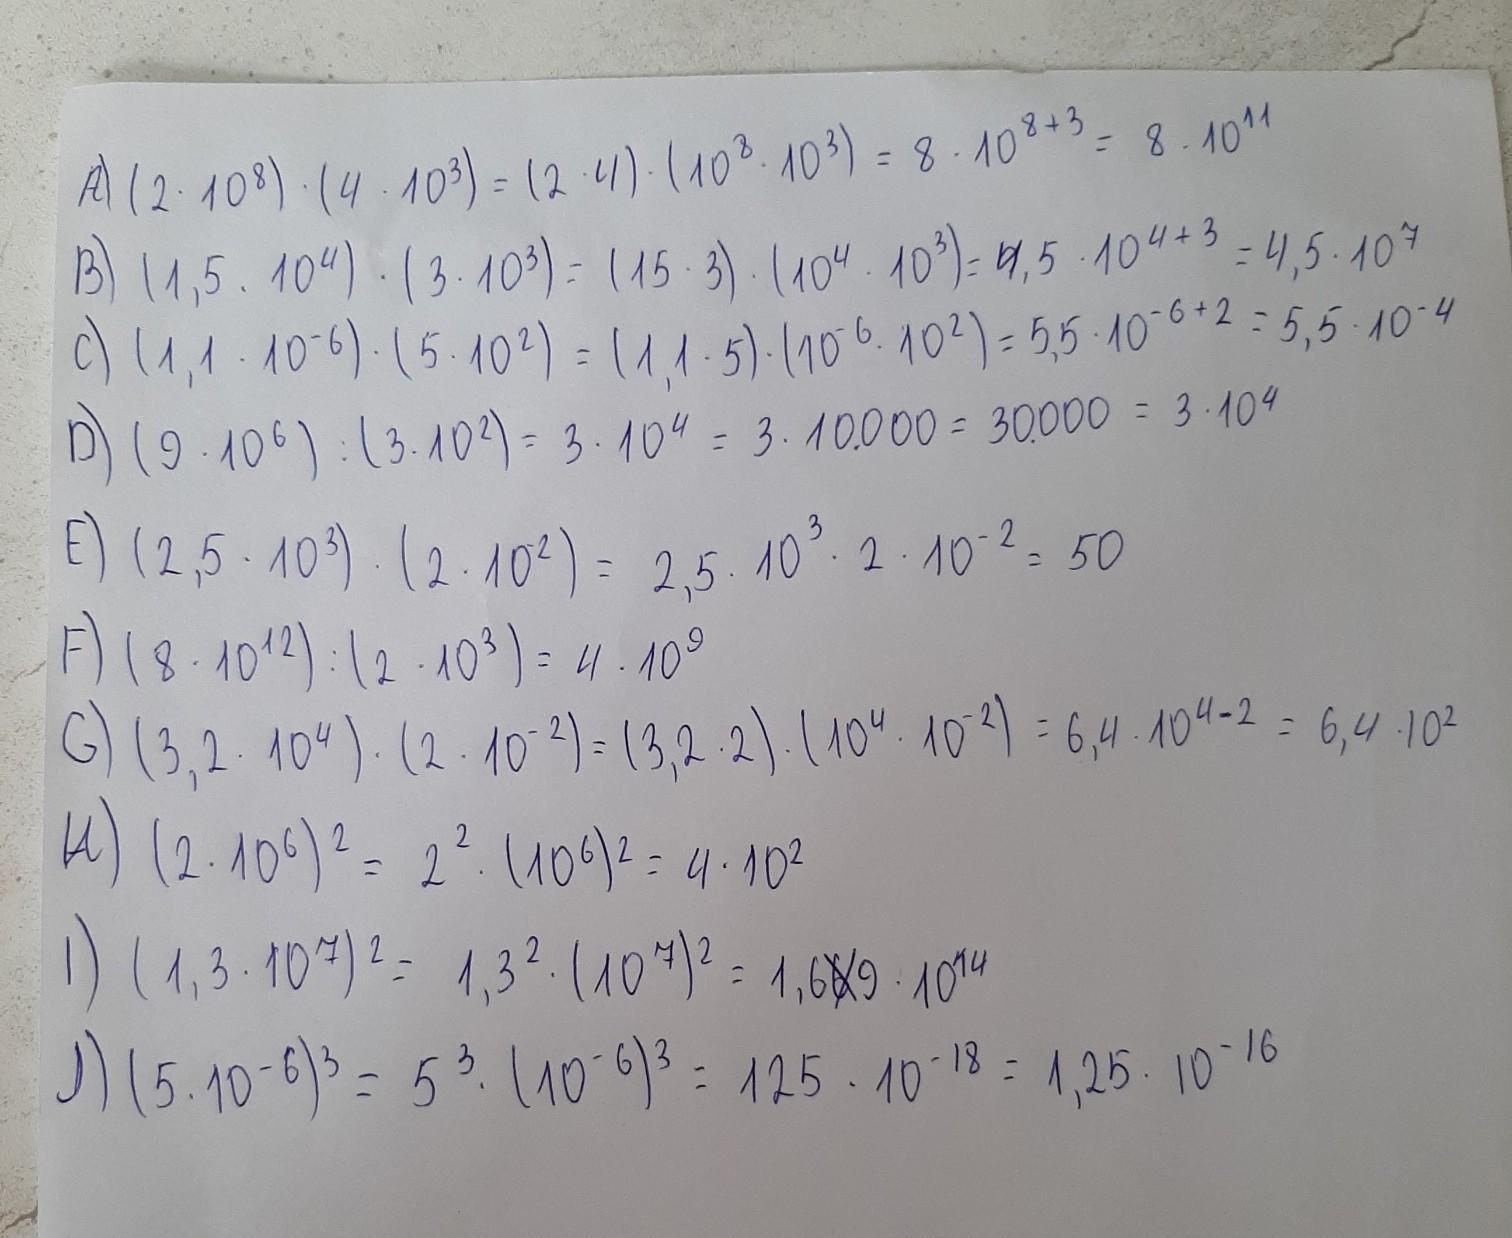 A) (2 · 10⁸) · (4 · 10³) = (2 · 4) · (10⁸ · 10³) = 8 · 10⁸⁺³ = 8 · 10¹¹
B) (1,5 · 10⁴) · (3 · 10³) = (15 · 3) · (10⁴ · 10³) = 4,5 · 10⁴⁺³ = 4,5 · 10⁷
C) (1,1 · 10⁻⁶) · (5 · 10²) = (1,1 · 5) · (10⁻⁶ · 10²) = 5,5 · 10⁻⁶⁺² = 5,5 · 10⁻⁴
D) (9 · 10⁶) : (3 · 10²) = 3 · 10⁴ = 3 · 10.000 = 30.000 = 3 · 10⁴
E) (2,5 · 10³) · (2 · 10⁻²) = 2,5 · 10³ · 2 · 10⁻² = 50
F) (8 · 10¹²) : (2 · 10³) = 4 · 10⁹
G) (3,2 · 10⁴) · (2 · 10⁻²) = (3,2 · 2) · (10⁴ · 10⁻²) = 6,4 · 10⁴⁻² = 6,4 · 10²
H) (2 · 10⁶)² = 2² · (10⁶)² = 4 · 10²
I) (1,3 · 10⁷)² = 1,3² · (10⁷)² = 1,69 · 10¹⁴
J) (5 · 10⁻⁶)³ = 5³ · (10⁻⁶)³ = 125 · 10⁻¹⁸ = 1,25 · 10⁻¹⁶